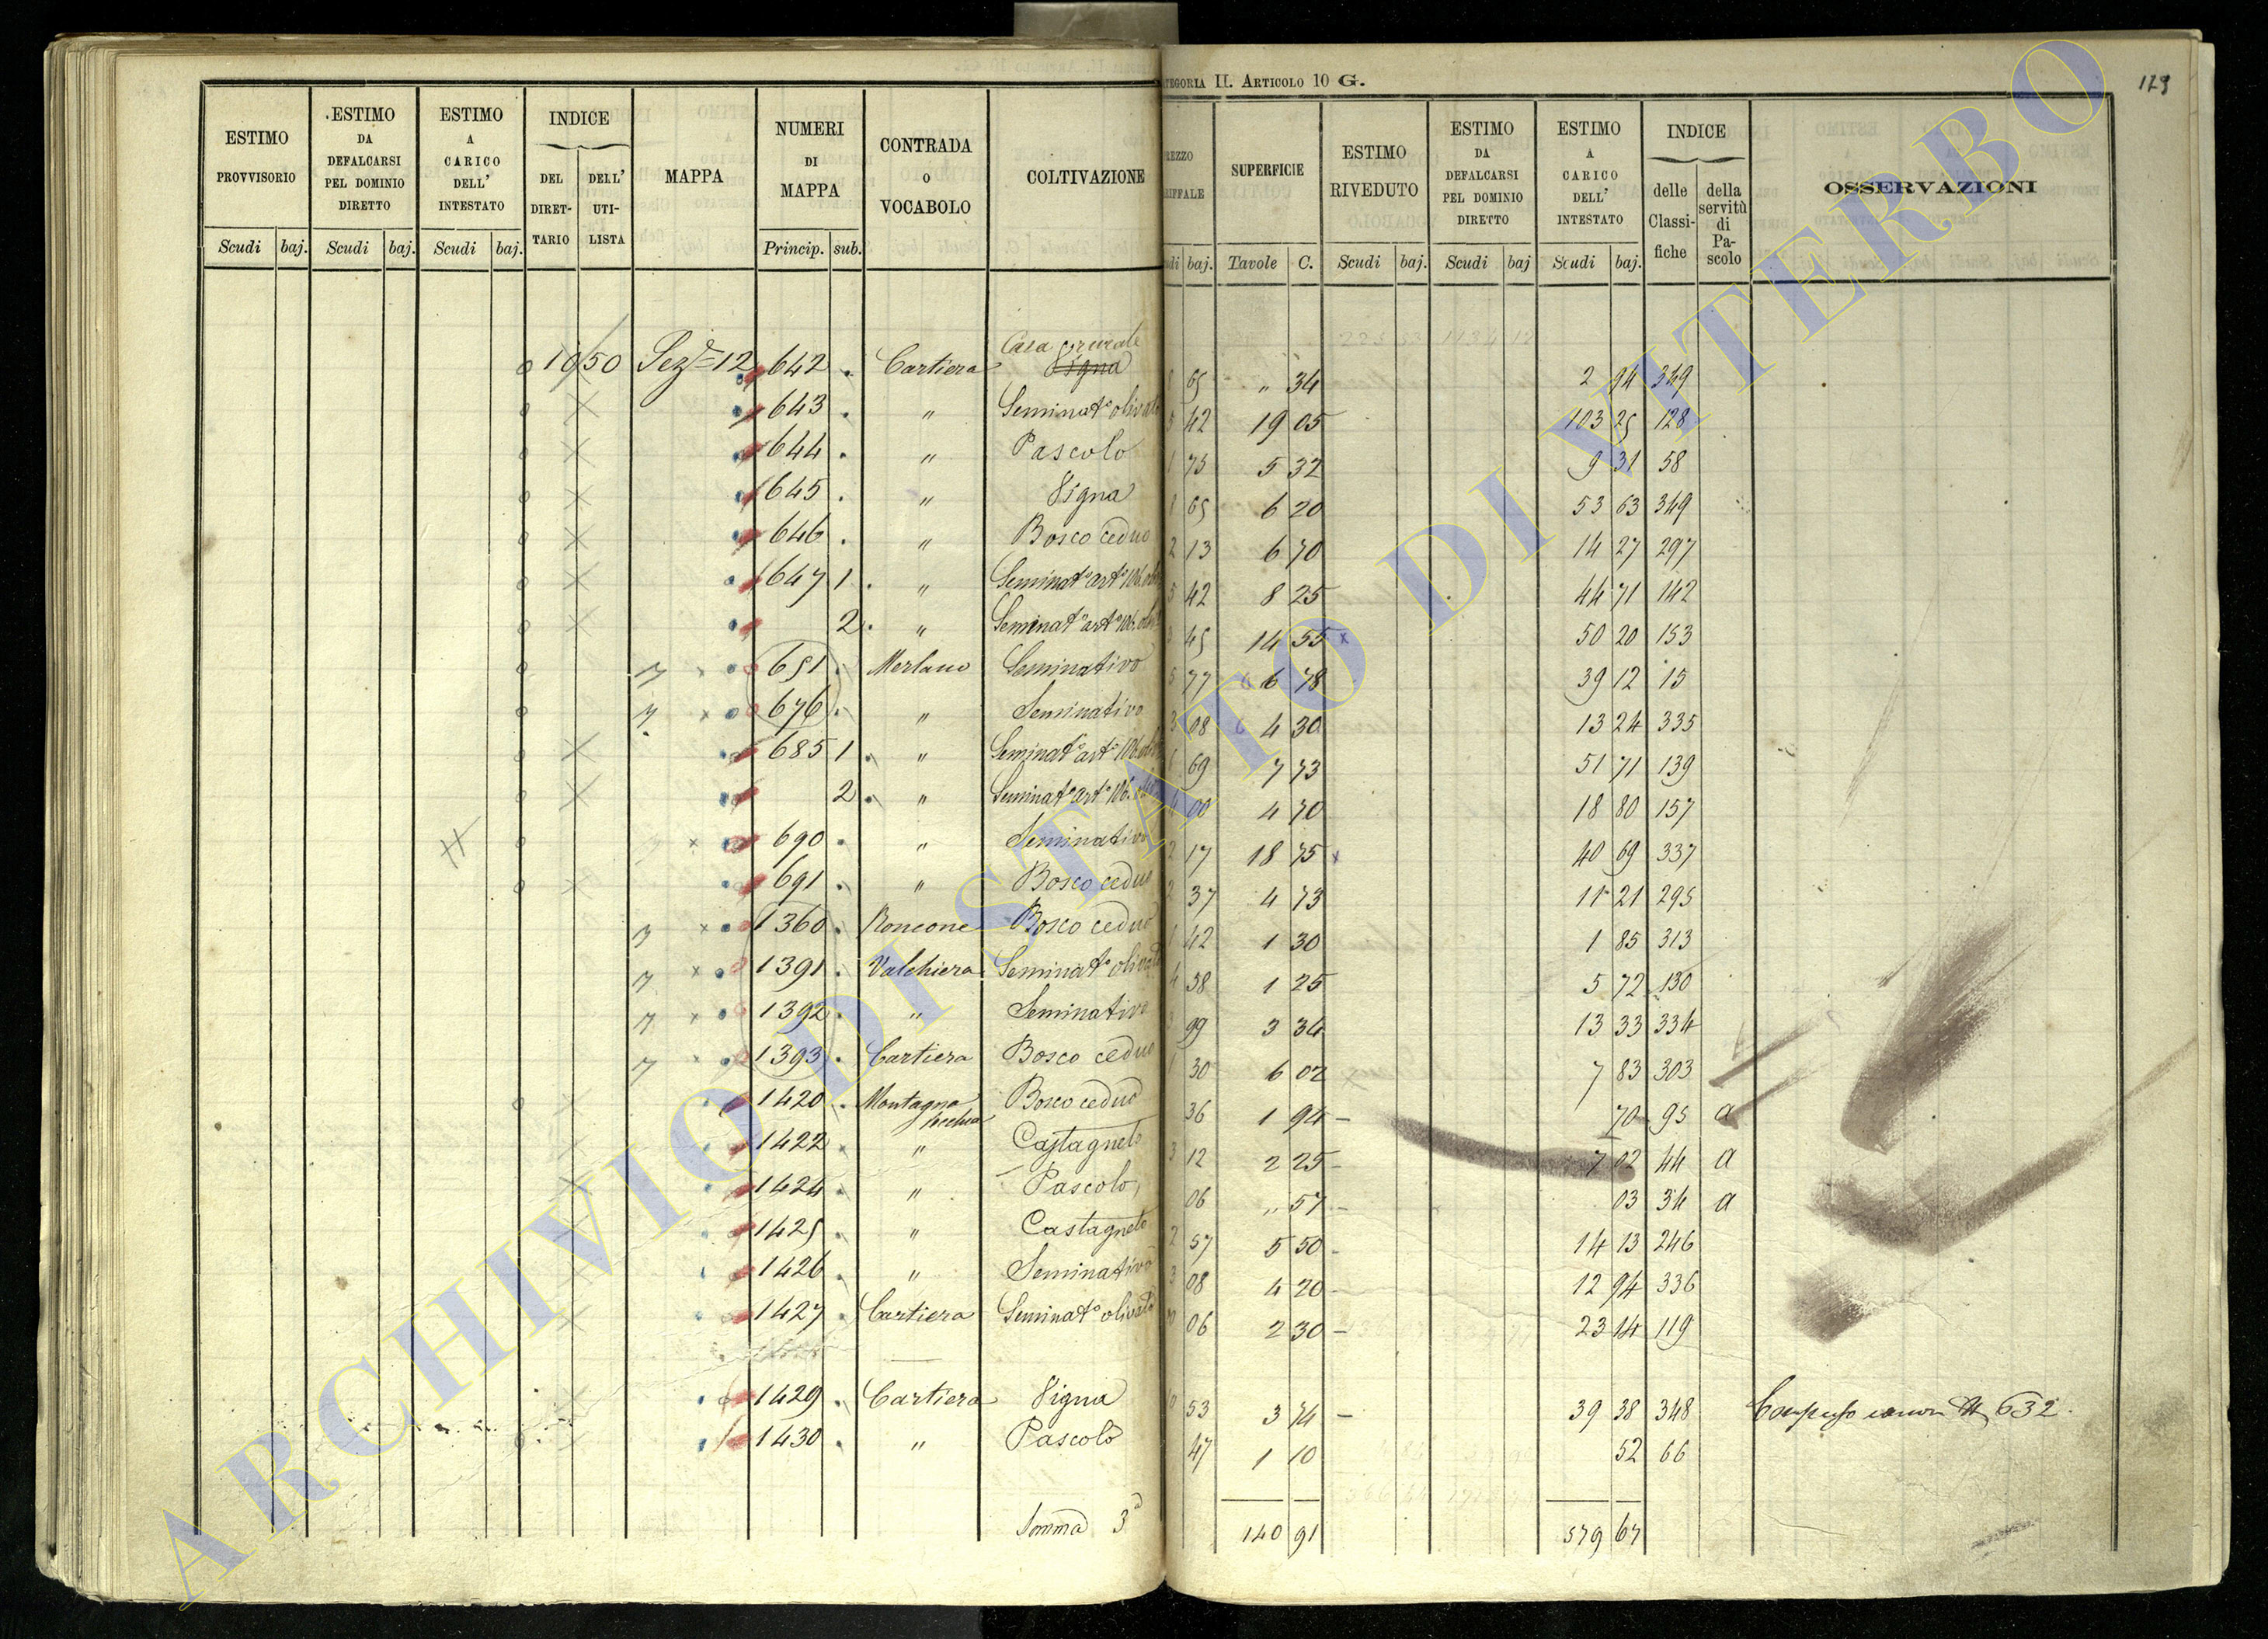 CATEGORIA II. ARTICOLO 10 G.
179
ESTIMO PROVVISORIO
Scudi baj.
ESTIMO DA DEFALCARSI PEL DOMINIO DIRETTO
Scudi baj.
ESTIMO A CARICO DELL' INTESTATO
Scudi baj.
INDICE
DEL DIRETTARIO
DELL' UTILISTA
MAPPA
NUMERI DI MAPPA
Princip. sub.
CONTRADA O VOCABOLO
COLTIVAZIONE
SUPERFICIE
baj. Tavole C.
ESTIMO RIVEDUTO
Scudi baj.
ESTIMO DA DEFALCARSI PEL DOMINIO DIRETTO
Scudi baj
ESTIMO A CARICO DELL' INTESTATO
Scudi baj.
INDICE
delle Classifiche
della servitù di Pascolo
OSSERVAZIONI
Casa rurale
1050 Sez.e 12 642 Cartiera Vigna 65 " 34 2 94 349
643 " Seminat.o olivato 5 42 19 05 103 25 128
644 " Pascolo 1 75 5 32 9 31 58
645 " Vigna 65 6 20 53 63 349
646 " Bosco ceduo 2 13 6 70 14 27 297
647 1 " Seminat.o art.o 106. 5 42 8 25 44 71 142
2 " Seminat.o art.o 106. 45 14 55 x 50 20 153
651 Merlano Seminativo 5 77 6 78 39 12 15
676 " Seminativo 3 08 4 30 13 24 335
685 1 " Seminat.o art.o 106. 6 69 7 73 51 71 139
2 " Seminat.o art.o 106. 00 4 70 18 80 157
690 " Seminativo 2 17 18 75 x 40 69 337
691 " Bosco ceduo 2 37 4 73 11 21 295
1360 Roncone Bosco ceduo 1 42 1 30 1 85 313
1391 Valchiera Seminat.o olivato 4 58 1 25 5 72 130
1392 " Seminativo 99 3 34 13 33 334
1393 Cartiera Bosco ceduo 1 30 6 02 7 83 303
1420 Montagna Bosco ceduo 36 1 94 – 70 95 a
1422 " Castagneto 3 12 2 25 – 7 02 44 a
1424 " Pascolo 06 " 57 – 03 34 a
1425 " Castagneto 2 57 5 50 – 14 13 246
1426 " Seminativo 3 08 4 20 – 12 94 336
1427 Cartiera Seminat.o olivato 06 2 30 – 23 14 119
1429 Cartiera Vigna 53 3 74 – 39 38 348 632.
1430 " Pascolo 47 1 10 52 66
Somma 3a 140 91 579 67
ARCHIVIO DI STATO DI VITERBO